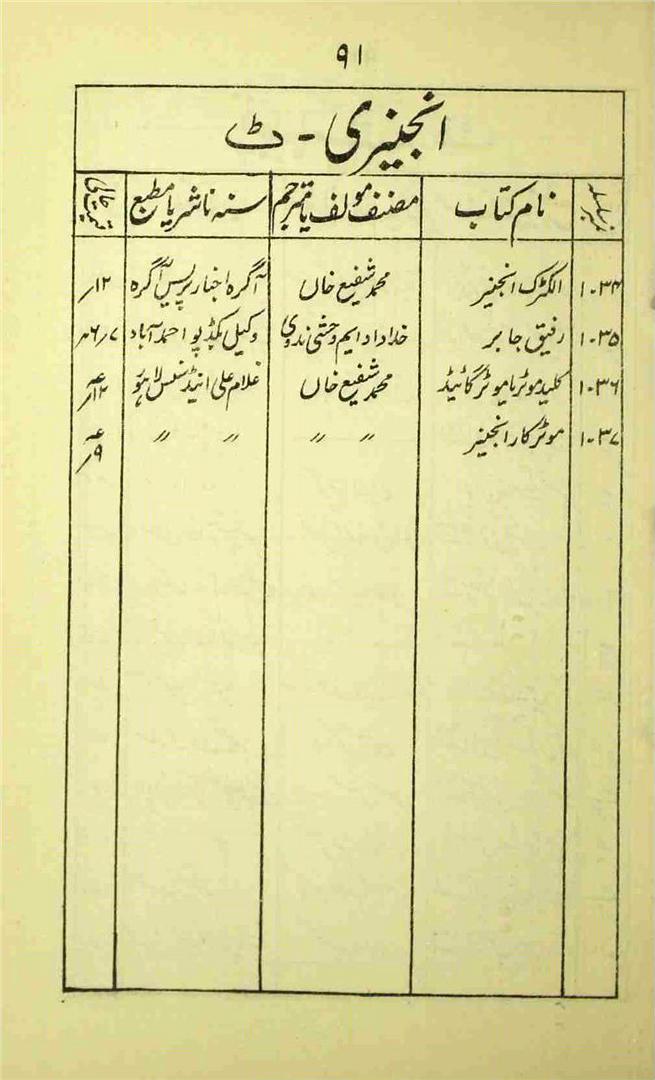 ۹۱
انجنیری - ٹ
نمبر سلسلہ | نام کتاب | مصنف مولف یا مترجم | سنہ ناشر یا مطبع | قیمت حالی
۱۰۳۴ | الکٹرک انجنیر | محمد شفیع خاں | آگرہ اخبار پریس آگرہ | ۱۲؍
۱۰۳۵ | رفیق جابر | خداداد ایم وحشی ندوی | وکیل بکڈپو احمدآباد
۱۰۳۶ | کلید موٹر یا موٹر گائیڈ | محمد شفیع خاں | غلام علی اینڈ سنس لاہور
۱۰۳۷ | موٹر کار انجنیر |〃 〃 | 〃 〃